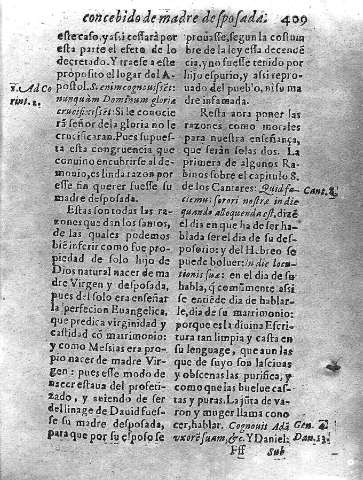 concebido de madre desposada. 409
este caso, y assi cessará por
esta parte el efeto de lo
decretado. Y traese a este
proposito el lugar del A-
1. Ad Co
rint. 2.
postol. Si enim cognouissẽt:
nunquàm Dominum gloriæ
crucifixissẽt: Si le conocie
rã señor de la gloria no le
crucificaran. Pues supues-
ta esta congruencia que
conuino encubrirse al de-
monio, es linda razon por
esse fin querer fuesse su
madre desposada.
Estas son todas las ra-
zones que dan los santos,
de las quales podemos
biẽ inferir como fue pro-
piedad de solo hijo de
Dios natural nacer de ma
dre Virgen y desposada,
pues del solo era enseñar
la perfecion Euangelica,
que predica virginidad y
castidad cõ matrimonio:
y como Messias era pro-
pio nacer de madre Vir-
gen: pues esse modo de
nacer estaua del profeti-
zado, y auiendo de ser
del linage de Dauid fues-
se su madre desposada,
para que por su esposo se
prouasse, segun la costum
bre de la ley essa decenden
cia, y no fuesse tenido por
hijo espurio, y assi repro-
uado del pueblo, ni su ma
dre infamada.
Resta aora poner las
razones como morales
para nuestra enseñança,
que serán solas dos. La
primera de algunos Ra-
binos sobre el capitulo 8.
de los Cantares: Quid fa-
Cant. 8.
ciemus sorori nostræ in die
quando alloquenda est, dize
el dia en que ha de ser ha-
blada serà el dia de su des-
posorio; y del Hebreo se
puede boluer: in die locu-
tionis suæ: en el dia de su
habla, q̃ comũmente assi
se entiẽde dia de hablar-
le, dia de su matrimonio:
porque es la diuina Escri-
tura tan limpia y casta en
su lenguage, que aun las
que de suyo son lasciuas
y obscenas las purifica, y
como que las buelue cas-
tas y puras. La jũta de va-
ron y muger llama cono
cer, hablar. Cognouit Adã
Gen. 4.
vxorẽ suam, &c. Y Daniel:
Dan. 13.
Fff
Sub